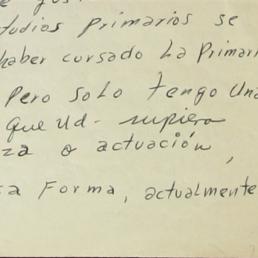 tudios Primarios se
haber cursado La Primari
Pero solo tengo Una
que Ud- supiera
za o actuación,
sa Forma, actualmente